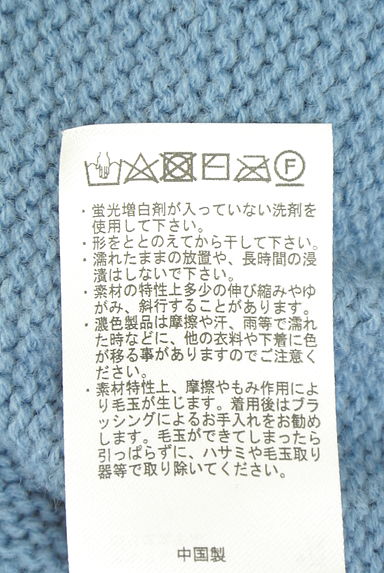 F
・蛍光増白剤が入っていない洗剤を
使用して下さい。
・形をととのえてから干して下さい。
・濡れたままの放置や、長時間の浸
漬はしないで下さい。
・素材の特性上多少の伸び縮みやゆ
がみ、斜行することがあります。
・濃色製品は摩擦や汗、雨等で濡れ
た時などに、他の衣料や下着に色
が移る事がありますのでご注意く
ださい。
・素材特性上、摩擦やもみ作用によ
り毛玉が生じます。着用後はブラ
ッシングによるお手入れをお勧め
します。毛玉ができてしまったら
引っぱらずに、ハサミや毛玉取り
器等で取り除いてください。
中国製